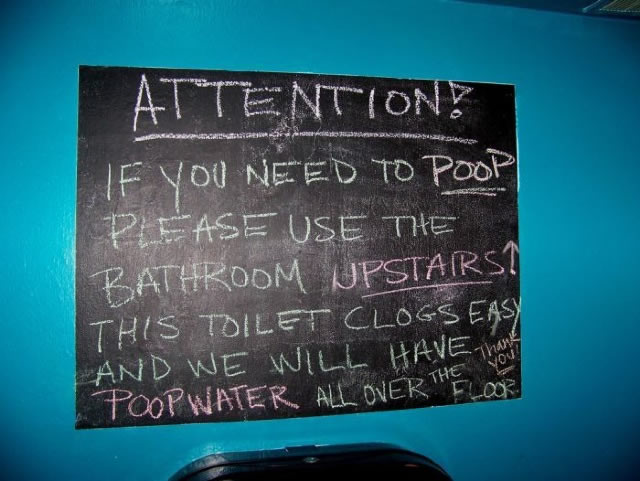 ATTENTION!
IF YOU NEED TO POOP
PLEASE USE THE
BATHROOM UPSTAIRS↑
THIS TOILET CLOGS EASY
AND WE WILL HAVE
POOPWATER ALL OVER THE FLOOR
THANK
YOU!